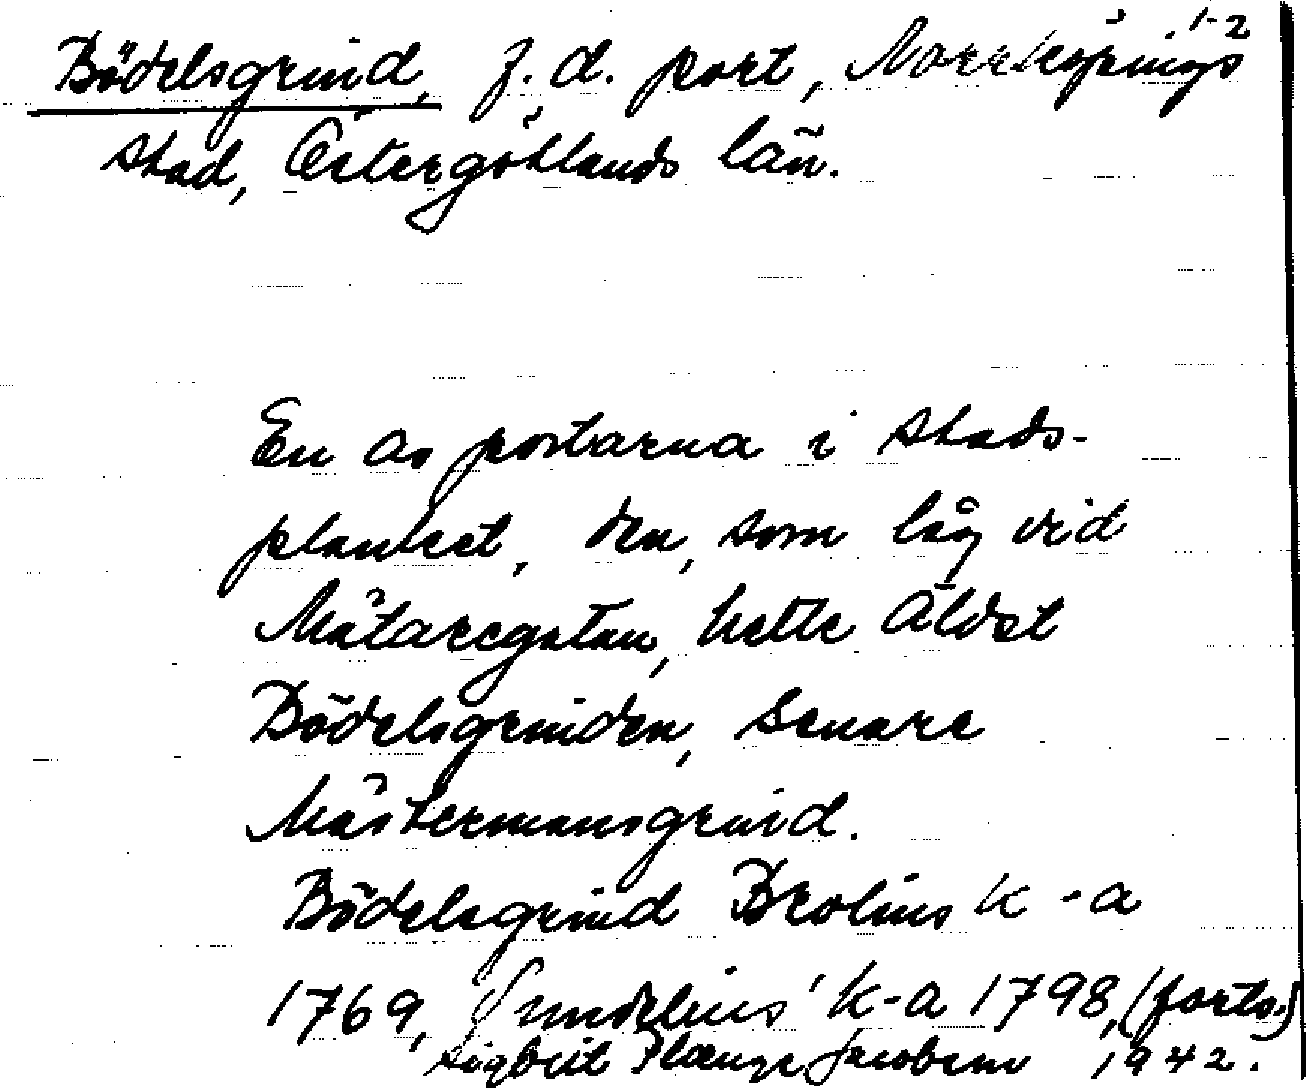 1-2
Bödelsgrind, f.d. port, Norrköpings
stad, Östergötlands län.
En av portarna i stads-
planket, den, som låg vid
Mätaregatan, hette äldst
Bödelsgrinden, senare
Mästermansgrind.
Bödelsgrind Brolins k-a
1769, Sundelius' k-a 1798, (forts.)
Sigbrit Plænge Jacobson 1942.